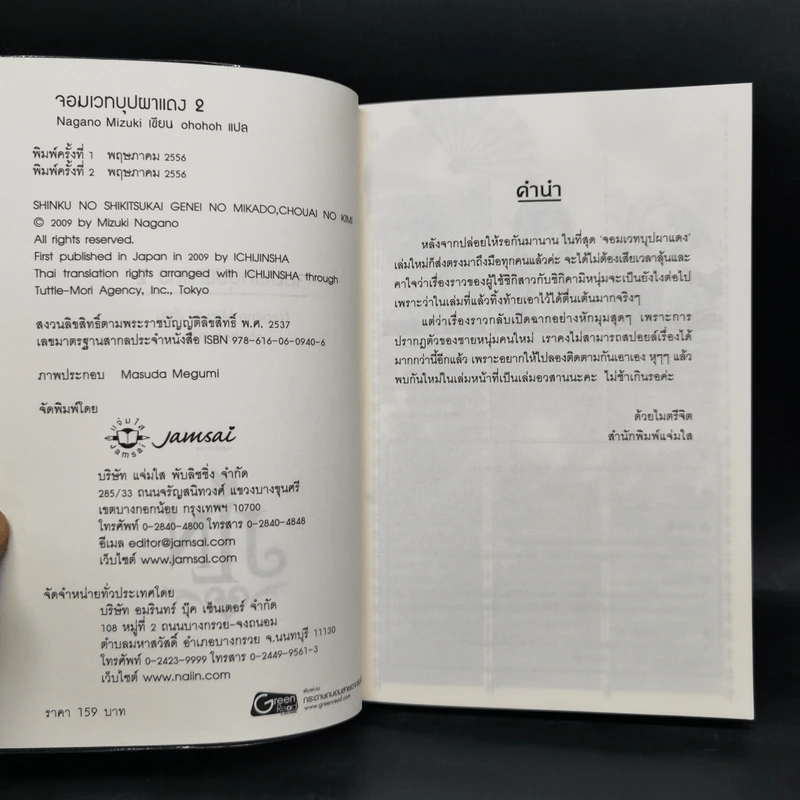 จอมเวทบุปผาแดง 2
Nagano Mizuki เขียน ohohoh แปล
พิมพ์ครั้งที่ 1 พฤษภาคม 2556
พิมพ์ครั้งที่ 2 พฤษภาคม 2556
SHINKU NO SHIKITSUKAI GENEI NO MIKADO,CHOUAI NO KIMI
© 2009 by Mizuki Nagano
All rights reserved.
First published in Japan in 2009 by ICHIJINSHA
Thai translation rights arranged with ICHIJINSHA through
Tuttle-Mori Agency, Inc., Tokyo
สงวนลิขสิทธิ์ตามพระราชบัญญัติลิขสิทธิ์ พ.ศ. 2537
เลขมาตรฐานสากลประจำหนังสือ ISBN 978-616-06-0940-6
ภาพประกอบ Masuda Megumi
จัดพิมพ์โดย
แจ่มใส
Jamsai
Jamsai
บริษัท แจ่มใส พับลิชชิ่ง จำกัด
285/33 ถนนจรัญสนิทวงศ์ แขวงบางขุนศรี
เขตบางกอกน้อย กรุงเทพฯ 10700
โทรศัพท์ 0-2840-4800 โทรสาร 0-2840-4848
อีเมล editor@jamsai.com
เว็บไซต์ www.jamsai.com
จัดจำหน่ายทั่วประเทศโดย
บริษัท อมรินทร์ บุ๊ค เซ็นเตอร์ จำกัด
108 หมู่ที่ 2 ถนนบางกรวย-จงถนอม
ตำบลมหาสวัสดิ์ อำเภอบางกรวย จ.นนทบุรี 11130
โทรศัพท์ 0-2423-9999 โทรสาร 0-2449-9561-3
เว็บไซต์ www.naiin.com
Green Read
พิมพ์บน
กระดาษถนอมสายตา
www.greenread.com
ราคา 159 บาท
คำนำ
หลังจากปล่อยให้รอกันมานาน ในที่สุด 'จอมเวทบุปผาแดง'
เล่มใหม่ก็ส่งตรงมาถึงมือทุกคนแล้วค่ะ จะได้ไม่ต้องเสียเวลาลุ้นและ
คาใจว่าเรื่องราวของผู้ใช้ชิกิสาวกับชิกิคามิหนุ่มจะเป็นยังไงต่อไป
เพราะว่าในเล่มที่แล้วทิ้งท้ายเอาไว้ได้ตื่นเต้นมากจริงๆ
แต่ว่าเรื่องราวกลับเปิดฉากอย่างหักมุมสุดๆ เพราะการ
ปรากฏตัวของชายหนุ่มคนใหม่ เราคงไม่สามารถสปอยล์เรื่องได้
มากกว่านี้อีกแล้ว เพราะอยากให้ไปลองติดตามกันเอาเอง หุๆๆ แล้ว
พบกันใหม่ในเล่มหน้าที่เป็นเล่มอวสานนะคะ ไม่ช้าเกินรอค่ะ
ด้วยไมตรีจิต
สำนักพิมพ์แจ่มใส